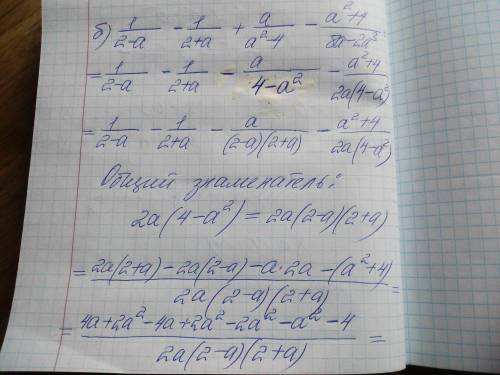 б) 1/(2-a) - 1/(2+a) + a/(a²-4) - (a²+4)/(8a-2a³)
= 1/(2-a) - 1/(2+a) - a/(4-a²) - (a²+4)/(2a(4-a²)
= 1/(2-a) - 1/(2+a) - a/((2-a)(2+a)) - (a²+4)/(2a(4-a²)
Общий знаменатель:
2a(4-a²) = 2a(2-a)(2+a)
= (2a(2+a) - 2a(2-a) - a·2a - (a²+4))/(2a(2-a)(2+a)) =
= (4a+2a²-4a+2a²-2a²-a²-4)/(2a(2-a)(2+a)) =